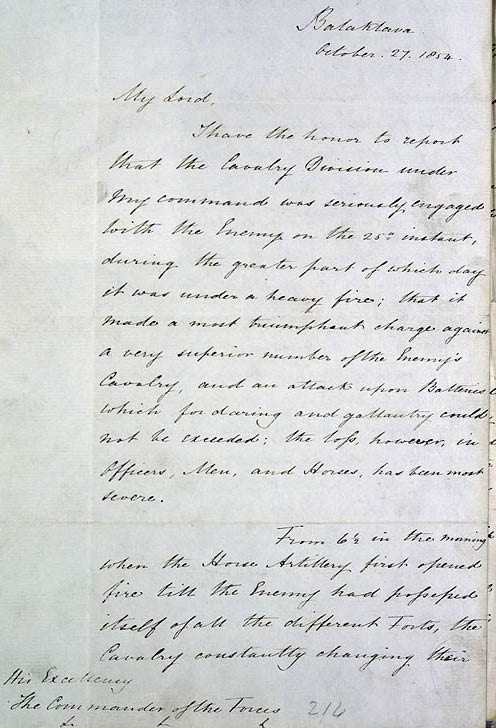 Balaklava
October. 27. 1854.
My Lord,
I have the honor to report
that the Cavalry Division under
My command was seriously engaged
with the Enemy on the 25th instant,
during the greater part of which day
it was under a heavy fire; that it
made a most triumphant charge against
a very superior number of the Enemy's
Cavalry, and an attack upon Batteries
which for daring and gallantry could
not be exceeded; the loss, however, in
Officers, Men, and Horses, has been most
severe.
From 6½ in the morning
when the Horse Artillery first opened
fire till the Enemy had possessed
itself of all the different Forts, the
Cavalry constantly changing their
His Excellency
The Commander of the Forces
216